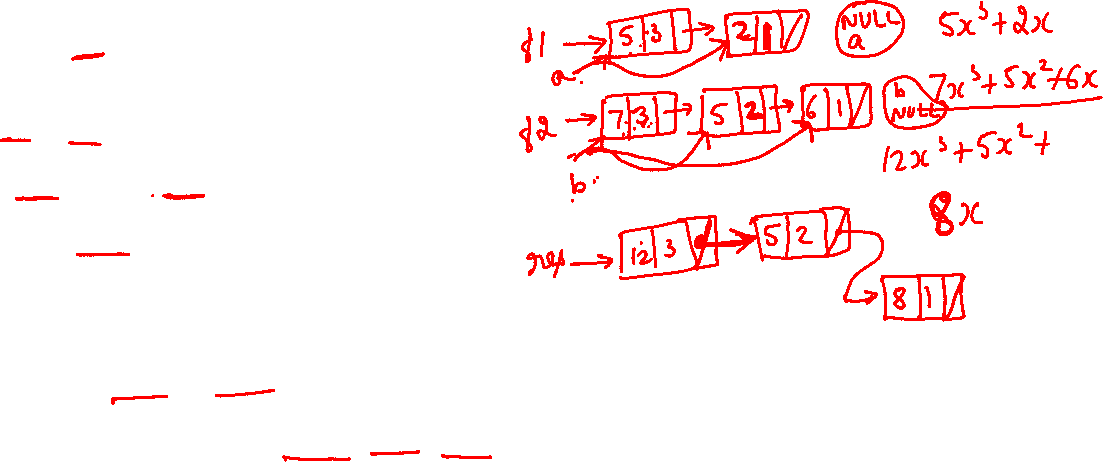 f1 → 5 3 → 2 1 NULL a 5x³+2x
a
f2 → 7 3 → 5 2 → 6 1 b NULL 7x³+5x²+6x
b
12x³+5x²+
8x
res → 12 3 → 5 2
8 1